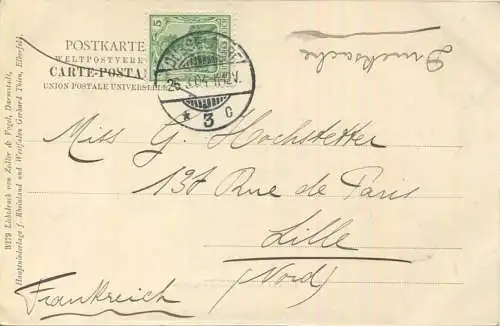 POSTKARTE
WELTPOSTVEREIN
CARTE-POSTALE
UNION POSTALE UNIVERSELLE
5
25. 04 12V.
* 3 c
Drucksache
Miss G. Hochstetter
137 Rue de Paris
Lille
(Nord)
Frankreich
9279 Lichtdruck von Zedler & Vogel, Darmstadt,
Hauptniederlage f. Rheinland und Westfalen Gerhard Thien, Elberfeld.